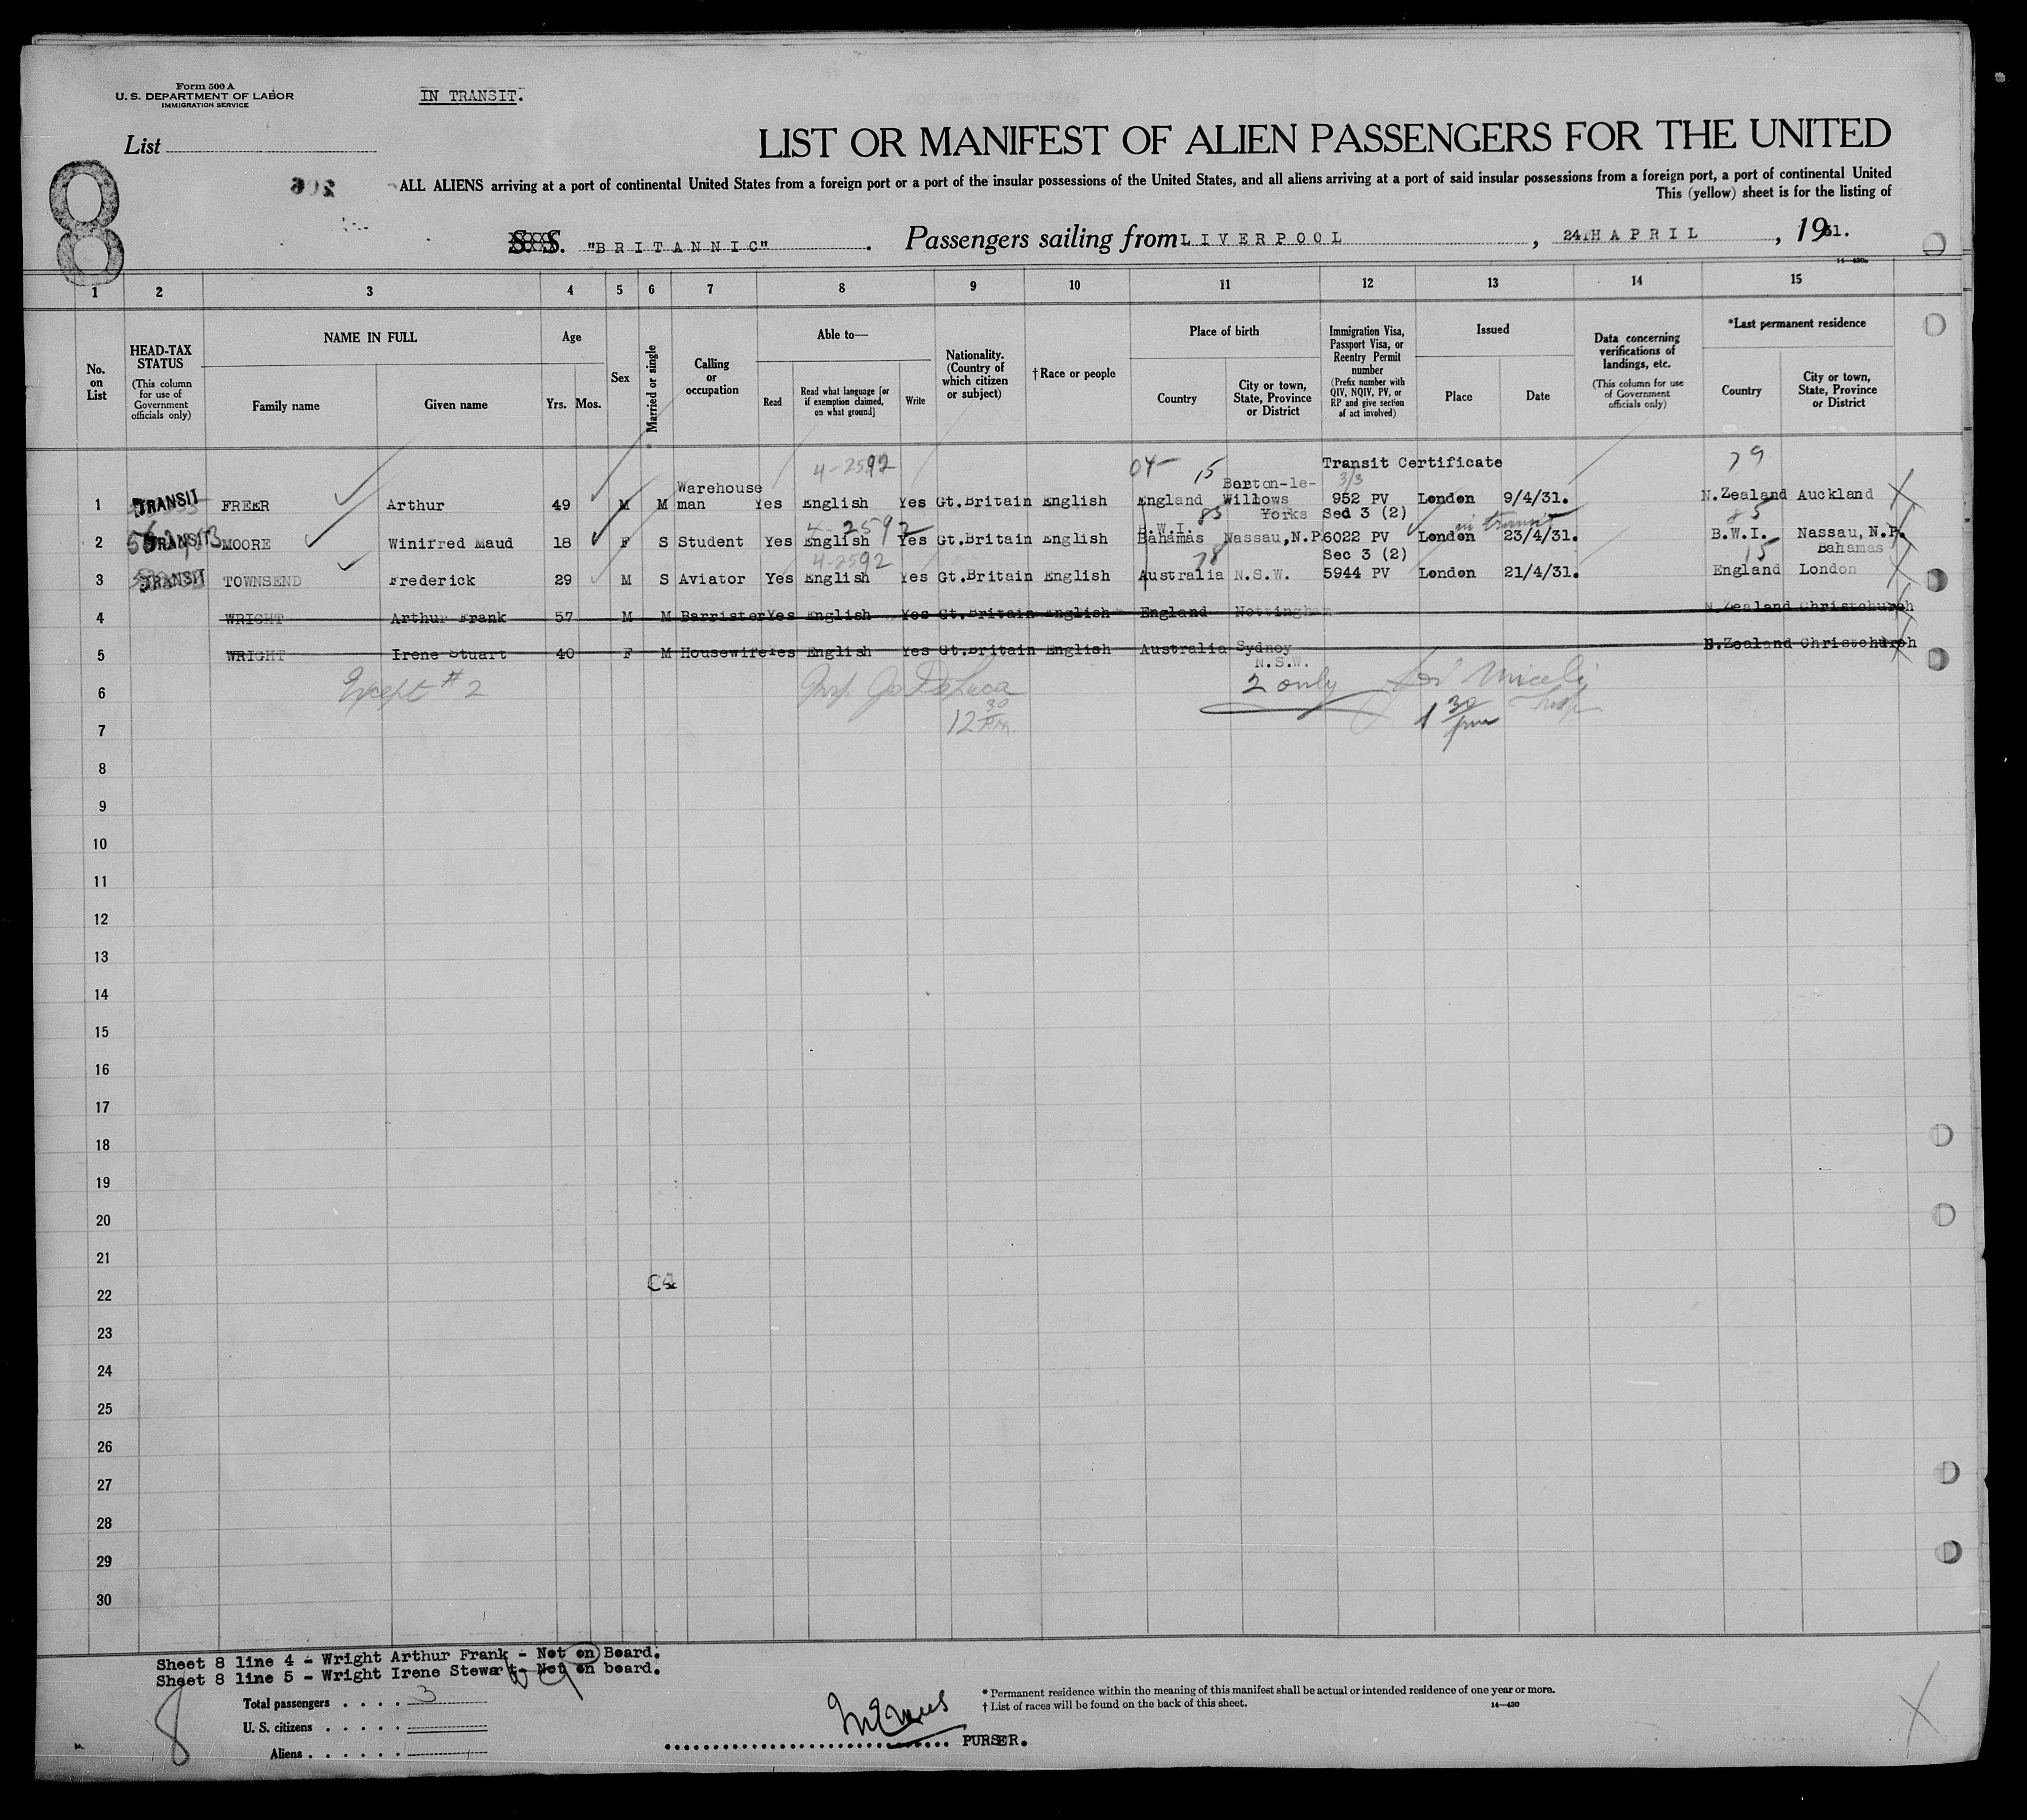 Form 500 A
U. S. DEPARTMENT OF LABOR
IMMIGRATION SERVICE
IN TRANSIT.
List
8
LIST OR MANIFEST OF ALIEN PASSENGERS FOR THE UNITED
ALL ALIENS arriving at a port of continental United States from a foreign port or a port of the insular possessions of the United States, and all aliens arriving at a port of said insular possessions from a foreign port, a port of continental United
This (yellow) sheet is for the listing of
S. S. "BRITANNIC" . Passengers sailing from LIVERPOOL , 24TH APRIL , 1931.
14-430a
1 2 3 4 5 6 7 8 9 10 11 12 13 14 15
No. on List
HEAD-TAX STATUS
(This column for use of Government officials only)
NAME IN FULL
Family name Given name
Age
Yrs. Mos.
Sex
Married or single
Calling or occupation
Able to—
Read
Read what language [or if exemption claimed, on what ground]
Write
Nationality. (Country of which citizen or subject)
†Race or people
Place of birth
Country
City or town, State, Province or District
Immigration Visa, Passport Visa, or Reentry Permit number
(Prefix number with QIV, NQIV, PV, or RP and give section of act involved)
Issued
Place Date
Data concerning verifications of landings, etc.
(This column for use of Government officials only)
*Last permanent residence
Country
City or town, State, Province or District
4-2592 04- 15 Transit Certificate 79
Warehouse Barton-le- 3/3
1 TRANSIT FREER Arthur 49 M M man Yes English Yes Gt.Britain English England Willows 952 PV London 9/4/31. N.Zealand Auckland
Yorks Sed 3 (2)
4-2592 B.W.I. 85 in transit 85
2 TRANSIT MOORE Winifred Maud 18 F S Student Yes English Yes Gt.Britain English Bahamas Nassau,N.P. 6022 PV London 23/4/31. B.W.I. Nassau, N.P.
4-2592 78 Sec 3 (2) 15 Bahamas
3 TRANSIT TOWNSEND Frederick 29 M S Aviator Yes English Yes Gt.Britain English Australia N.S.W. 5944 PV London 21/4/31. England London
4 WRIGHT Arthur Frank 57 M M Barrister Yes English Yes Gt.Britain English England Nottingham N.Zealand Christchurch
5 WRIGHT Irene Stuart 40 F M Housewife Yes English Yes Gt.Britain English Australia Sydney N.Zealand Christchurch
N.S.W.
6 Except #2 Insp. Jo DeLuca 2 only Miceli
7 12 30 P.M. 1 30 pm Insp
8
9
10
11
12
13
14
15
16
17
18
19
20
21
22 C4
23
24
25
26
27
28
29
30
Sheet 8 line 4 - Wright Arthur Frank - Not on Board.
Sheet 8 line 5 - Wright Irene Stewart- Not on board.
8
Total passengers . . . . 3
U. S. citizens . . . . .
Aliens . . . . . .
* Permanent residence within the meaning of this manifest shall be actual or intended residence of one year or more.
† List of races will be found on the back of this sheet.
14—430
PURSER.